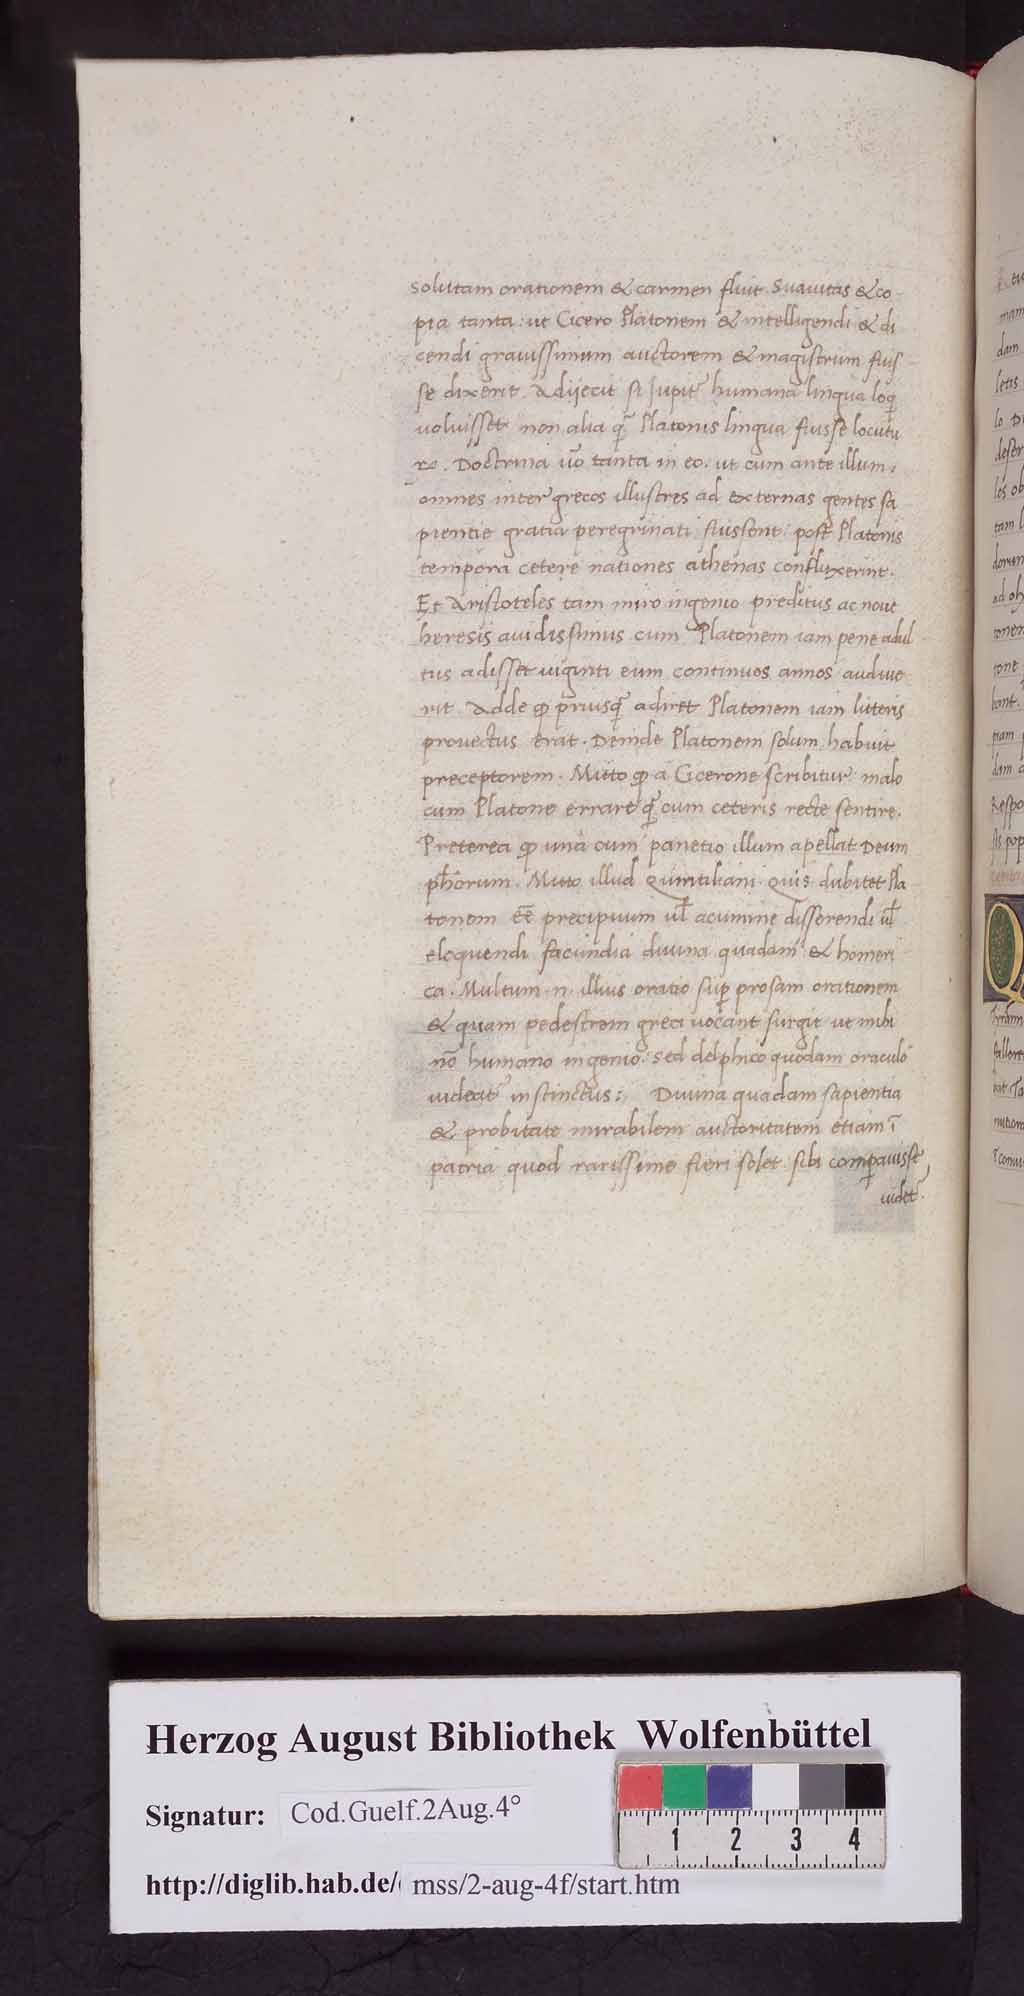 solutam orationem & carmen fluit. Suauitas & co-
pia tanta: ut Cicero Platonem & intelligendi & di
cendi grauissimum auctorem & magistrum fuis
se dixerit. Adijecit si Jupit̃ humana lingua loq̃
uoluisset non alia q̃ Platonis lingua fuisse locutu
rũ. Doctrina ũo tanta in eo. ut cum ante illum.
omnes inter grecos illustres ad externas gentes sa
pientie gratia peregrinati fuissent: post Platonis
tempora cetere nationes athenas confluxerint.
Et Aristoteles tam miro ingenio preditus ac noue
heresis auidissimus cum Platonem iam pene adul
tus adisset uiginti eum continuos annos audiue
rit. Adde ꝙ priusq̃ adiret Platonem iam litteris
prouectus erat. Deinde Platonem solum habuit
preceptorem. Mitto ꝙ a Cicerone scribitur malo
cum Platone errare q̃ cum ceteris recte sentire.
Preterea ꝙ una cum panetio illum apellat Deum
ph̃orum. Mitto illud Quintiliani. Quis dubitet Pla
tonem ẽẽ precipuum ul̃ acumine disserendi ul̃
eloquendi facundia diuina quadam & homeri
ca. Multum .n. illius oratio sup̱ prosam orationem
& quam pedestrem greci uocant surgit ut mihi
nõ humano ingenio: sed delphico quodam oraculo
uideat̃ instinctus:, Diuina quadam sapientia
& probitate mirabilem auctoritatem etiam ĩ
patria quod rarissime fieri solet. sibi comp̱auisse
uidet̃.
mam
dam
letis
tam
Respo
Herzog August Bibliothek Wolfenbüttel
Signatur: Cod.Guelf.2Aug.4°
1 2 3 4
http://diglib.hab.de/ mss/2-aug-4f/start.htm